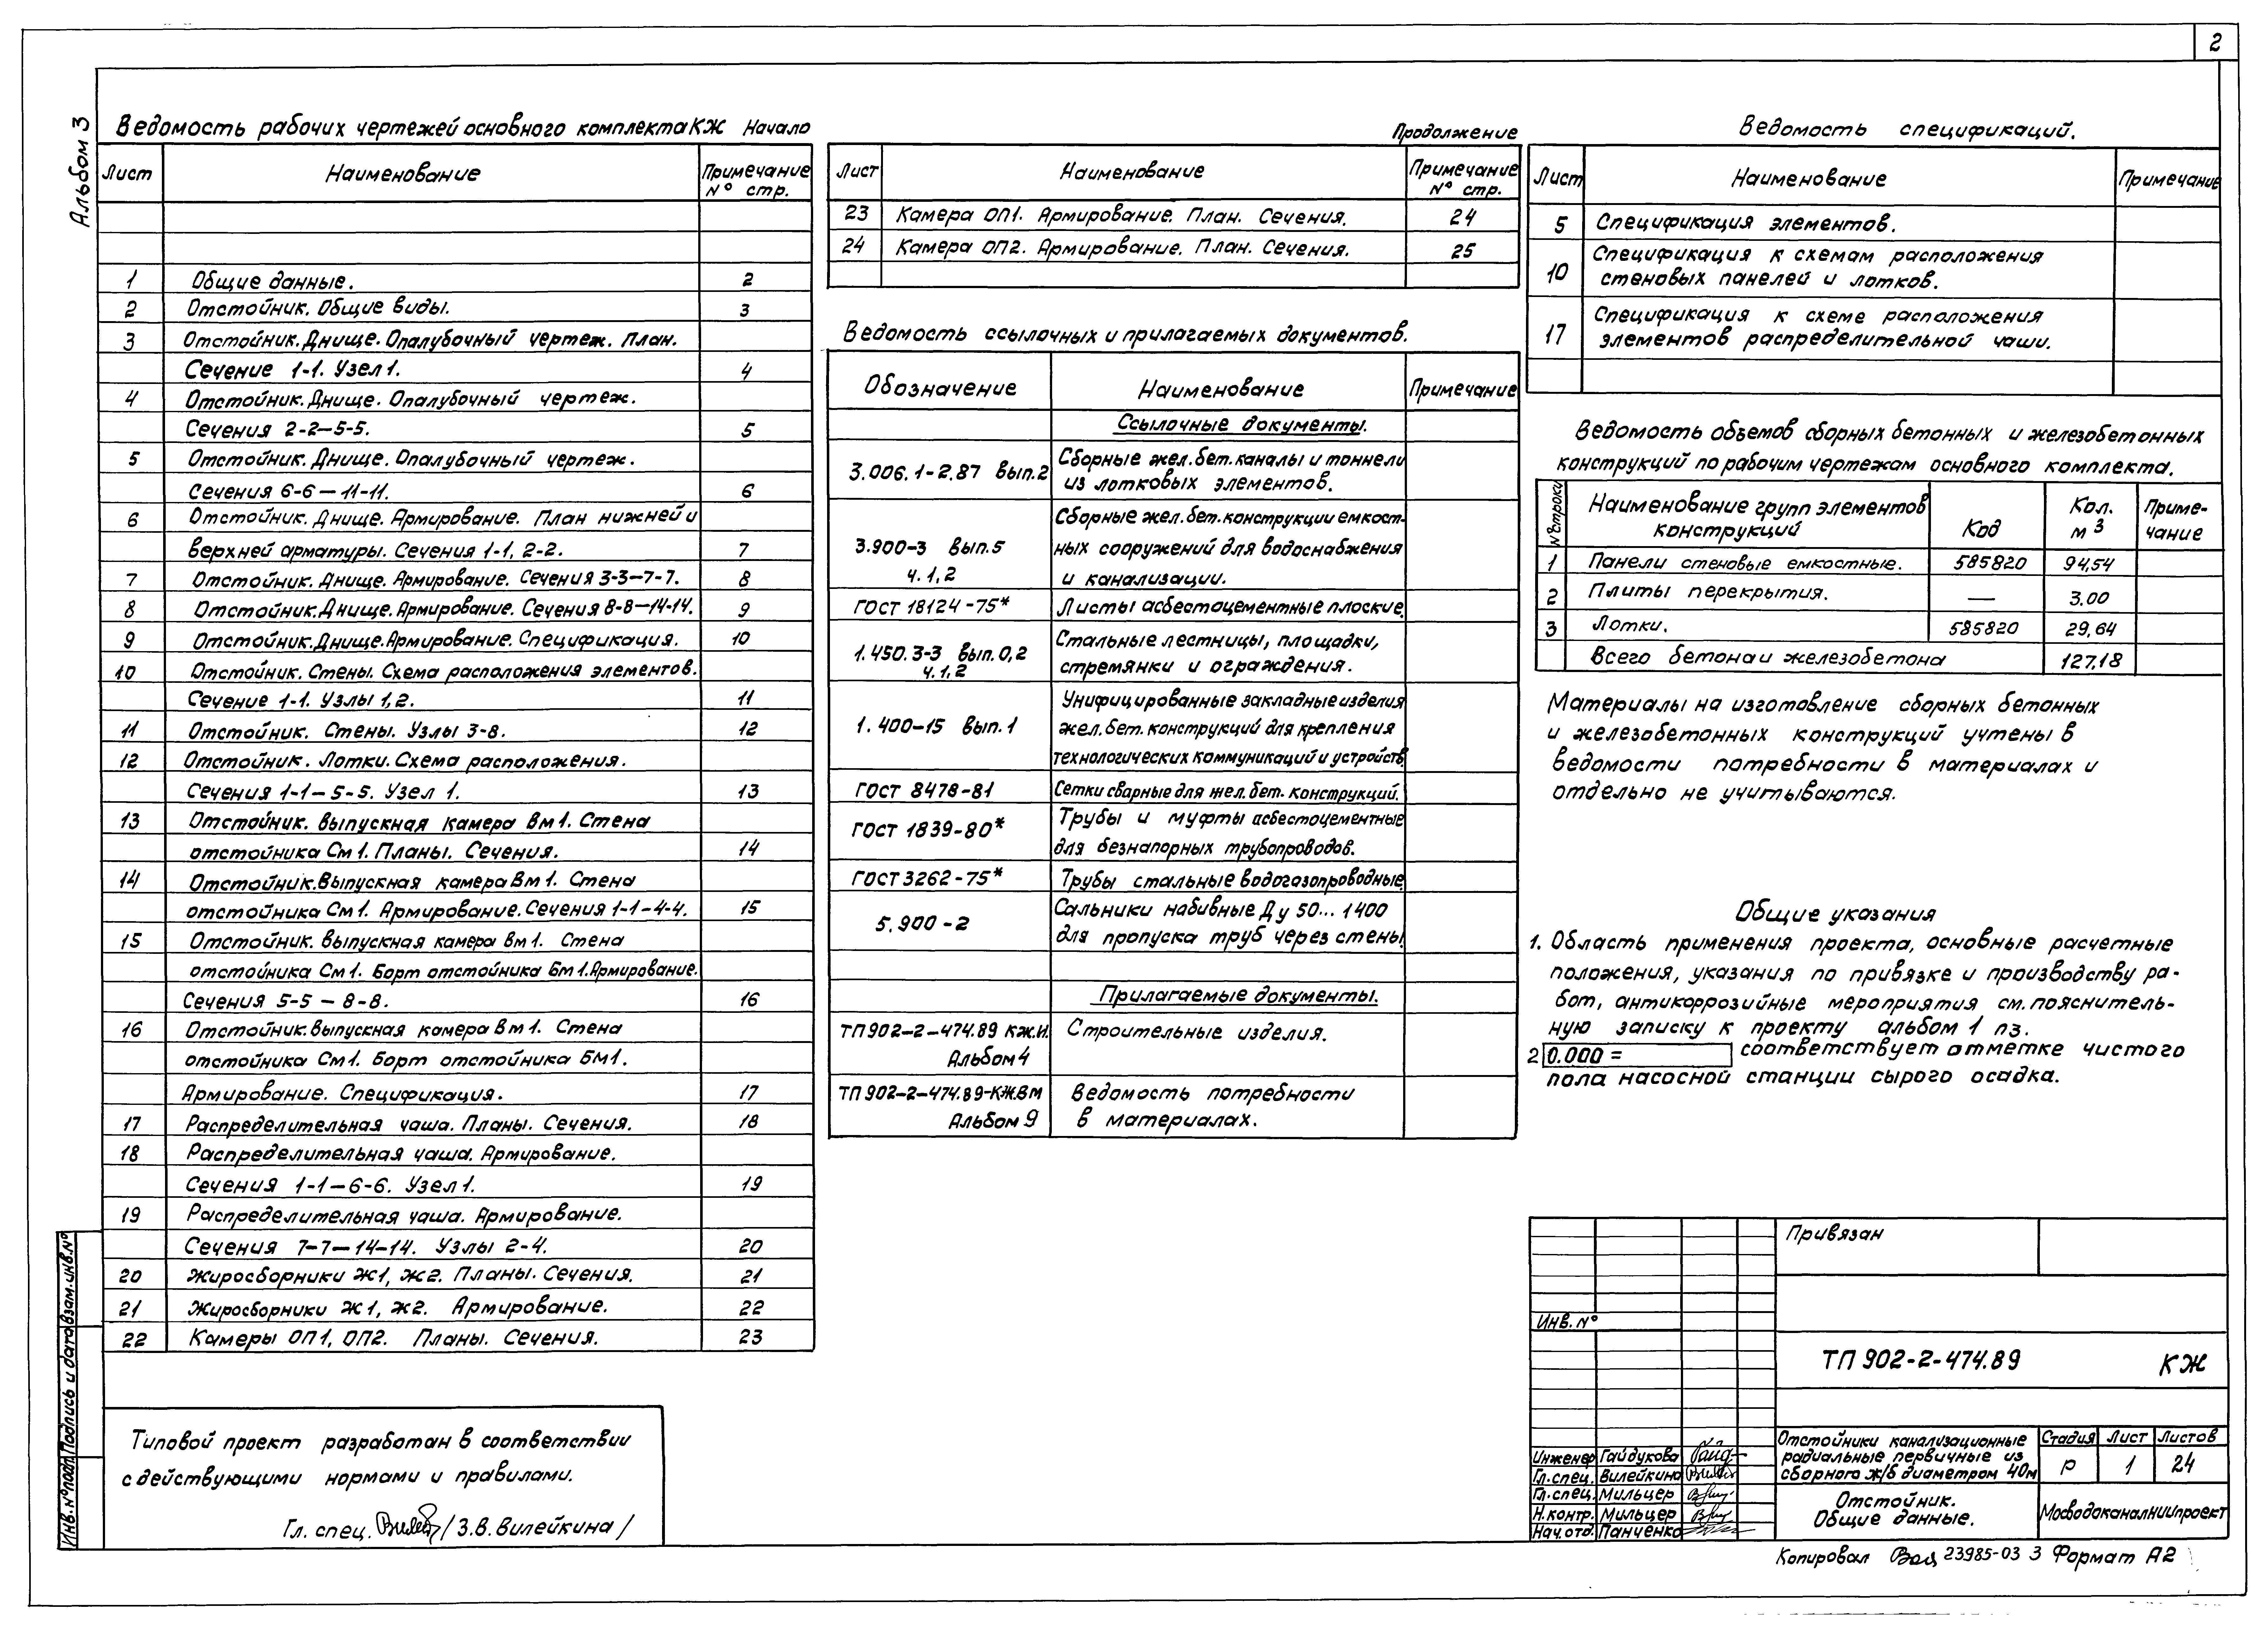 2
Альбом 3
Ведомость рабочих чертежей основного комплекта КЖ Начало
Лист Наименование Примечание № стр.
1 Общие данные. 2
2 Отстойник. Общие виды. 3
3 Отстойник. Днище. Опалубочный чертеж. План.
Сечение 1-1. Узел 1. 4
4 Отстойник. Днище. Опалубочный чертеж.
Сечения 2-2—5-5. 5
5 Отстойник. Днище. Опалубочный чертеж.
Сечения 6-6—11-11. 6
6 Отстойник. Днище. Армирование. План нижней и
верхней арматуры. Сечения 1-1, 2-2. 7
7 Отстойник. Днище. Армирование. Сечения 3-3—7-7. 8
8 Отстойник. Днище. Армирование. Сечения 8-8—14-14. 9
9 Отстойник. Днище. Армирование. Спецификация. 10
10 Отстойник. Стены. Схема расположения элементов.
Сечение 1-1. Узлы 1,2. 11
11 Отстойник. Стены. Узлы 3-8. 12
12 Отстойник. Лотки. Схема расположения.
Сечения 1-1—5-5. Узел 1. 13
13 Отстойник. выпускная камера Вм1. Стена
отстойника См1. Планы. Сечения. 14
14 Отстойник. Выпускная камера Вм1. Стена
отстойника См1. Армирование. Сечения 1-1-4-4. 15
15 Отстойник. выпускная камера Вм1. Стена
отстойника См1. Борт отстойника Бм1. Армирование.
Сечения 5-5 — 8-8. 16
16 Отстойник. выпускная камера Вм1. Стена
отстойника См1. Борт отстойника БМ1.
Армирование. Спецификация. 17
17 Распределительная чаша. Планы. Сечения. 18
18 Распределительная чаша. Армирование.
Сечения 1-1—6-6. Узел 1. 19
19 Распределительная чаша. Армирование.
Сечения 7-7—14-14. Узлы 2-4. 20
20 Жиросборники Ж1, Ж2. Планы. Сечения. 21
21 Жиросборники Ж1, Ж2. Армирование. 22
22 Камеры ОП1, ОП2. Планы. Сечения. 23
Типовой проект разработан в соответствии
с действующими нормами и правилами.
Гл. спец. /З.В. Вилейкина/
Инв. № подл. Подпись и дата Взам. инв. №
Продолжение
Лист Наименование Примечание № стр.
23 Камера ОП1. Армирование. План. Сечения. 24
24 Камера ОП2. Армирование. План. Сечения. 25
Ведомость ссылочных и прилагаемых документов.
Обозначение Наименование Примечание
Ссылочные документы.
3.006.1-2.87 вып.2 Сборные жел. бет. каналы и тоннели
из лотковых элементов.
Сборные жел. бет. конструкции емкост-
3.900-3 вып.5 ных сооружений для водоснабжения
ч. 1,2 и канализации.
ГОСТ 18124-75* Листы асбестоцементные плоские.
1.450.3-3 вып. 0,2 Стальные лестницы, площадки,
ч.1,2 стремянки и ограждения.
Унифицированные закладные изделия
1.400-15 вып. 1 жел. бет. конструкций для крепления
технологических коммуникаций и устройств.
ГОСТ 8478-81 Сетки сварные для жел. бет. конструкций.
ГОСТ 1839-80* Трубы и муфты асбестоцементные
для безнапорных трубопроводов.
ГОСТ 3262-75* Трубы стальные водогазопроводные.
5.900-2 Сальники набивные Ду 50...1400
для пропуска труб через стены.
Прилагаемые документы.
ТП902-2-474.89 КЖ.И. Строительные изделия.
Альбом 4
ТП 902-2-474.89-КЖВм Ведомость потребности
Альбом 9 в материалах.
Ведомость спецификаций.
Лист Наименование Примечание
5 Спецификация элементов.
10 Спецификация к схемам расположения
стеновых панелей и лотков.
17 Спецификация к схеме расположения
элементов распределительной чаши.
Ведомость объемов сборных бетонных и железобетонных
конструкций по рабочим чертежам основного комплекта.
№ строки Наименование групп элементов конструкций Код Кол. м3 Приме-чание
1 Панели стеновые емкостные. 585820 94,54
2 Плиты перекрытия. — 3.00
3 Лотки. 585820 29,64
Всего бетона и железобетона 127,18
Материалы на изготовление сборных бетонных
и железобетонных конструкций учтены в
ведомости потребности в материалах и
отдельно не учитываются.
Общие указания
1. Область применения проекта, основные расчетные
положения, указания по привязке и производству ра-
бот, антикоррозийные мероприятия см. пояснитель-
ную записку к проекту альбом 1 пз.
2 0.000 = соответствует отметке чистого
пола насосной станции сырого осадка.
Привязан
Инв. №
ТП 902-2-474.89 КЖ
Инженер Гайдукова
Гл. спец. Вилейкина
Гл. спец. Мильцер
Н. контр. Мильцер
Нач. отд. Панченко
Отстойники канализационные
радиальные первичные из
сборного ж/б диаметром 40м
Стадия Лист Листов
Р 1 24
Отстойник.
Общие данные.
Мосводоканалниипроект
Копировал 23985-03 3 Формат А2